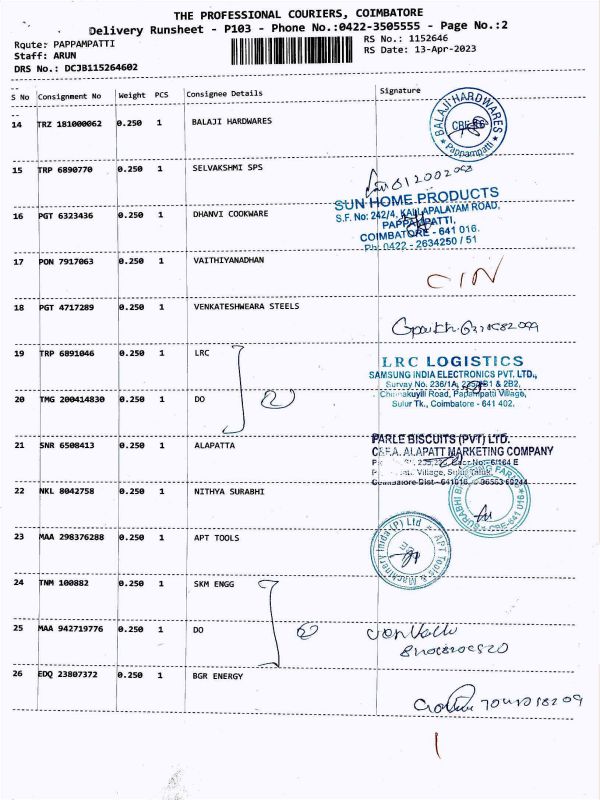 THE PROFESSIONAL COURIERS, COIMBATORE
Delivery Runsheet - P103 - Phone No.:0422-3505555 - Page No.:2
Route: PAPPAMPATTI RS No.: 1152646
Staff: ARUN RS Date: 13-Apr-2023
DRS No.: DCJB115264602
S No Consignment No Weight PCS Consignee Details Signature
14 TRZ 181000062 0.250 1 BALAJI HARDWARES
BALAJI HARDWARES
Pappampatti
15 TRP 6890770 0.250 1 SELVAKSHMI SPS
16 PGT 6323436 0.250 1 DHANVI COOKWARE
SUN HOME PRODUCTS
S.F. No: 242/4, KALLAPALAYAM ROAD,
PAPPAMPATTI,
COIMBATORE - 641 016.
Ph: 0422 - 2634250 / 51
17 PON 7917063 0.250 1 VAITHIYANADHAN
18 PGT 4717289 0.250 1 VENKATESHWEARA STEELS
19 TRP 6891046 0.250 1 LRC
LRC LOGISTICS
SAMSUNG INDIA ELECTRONICS PVT. LTD.,
Survey No. 236/1A, & 2B2,
Road, Pappampatti Village,
Sulur Tk., Coimbatore - 641 402.
20 TMG 200414830 0.250 1 DO 2
21 SNR 6508413 0.250 1 ALAPATTA
PARLE BISCUITS (PVT) LTD.
C&F.A. ALAPATT MARKETING COMPANY
Village, Sulur Taluk,
22 NKL 8042758 0.250 1 NITHYA SURABHI
23 MAA 298376288 0.250 1 APT TOOLS
APT Tools & Machinery India (P) Ltd
24 TNM 100882 0.250 1 SKM ENGG
25 MAA 942719776 0.250 1 DO
26 EDQ 23807372 0.250 1 BGR ENERGY